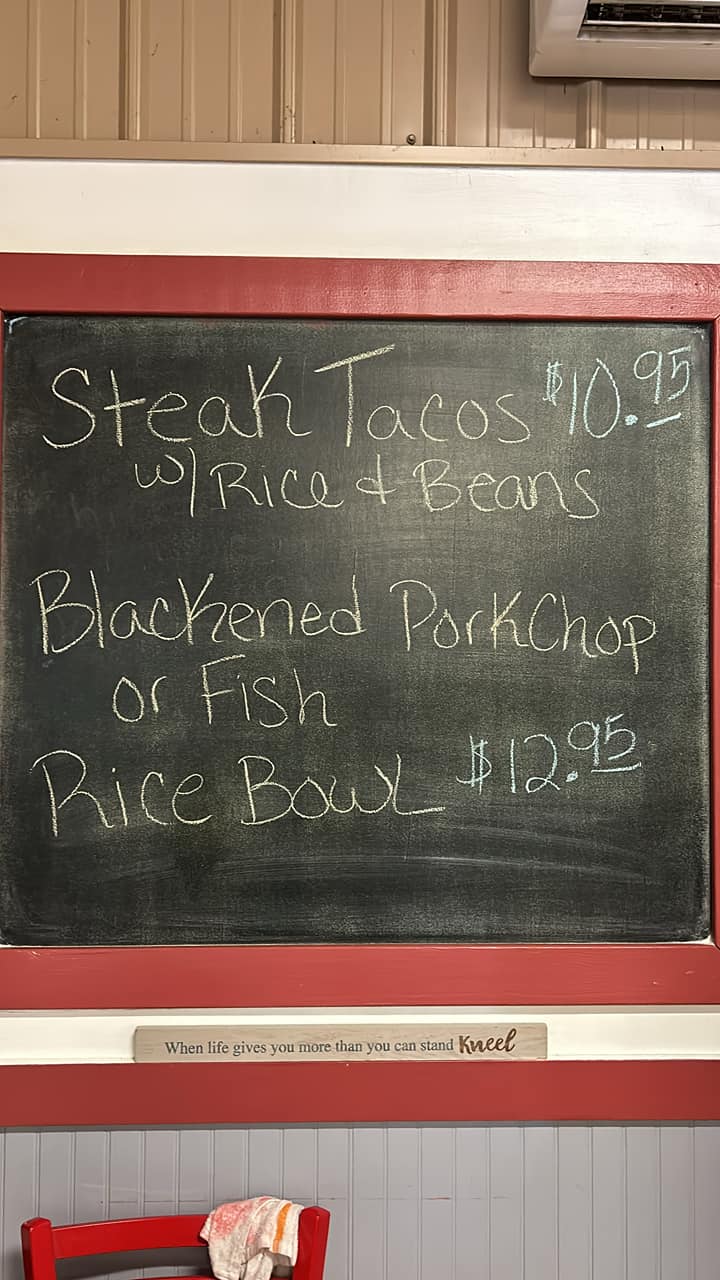 Steak Tacos $10.95
w/ Rice & Beans
Blackened Pork Chop
or Fish
Rice Bowl $12.95
When life gives you more than you can stand Kneel